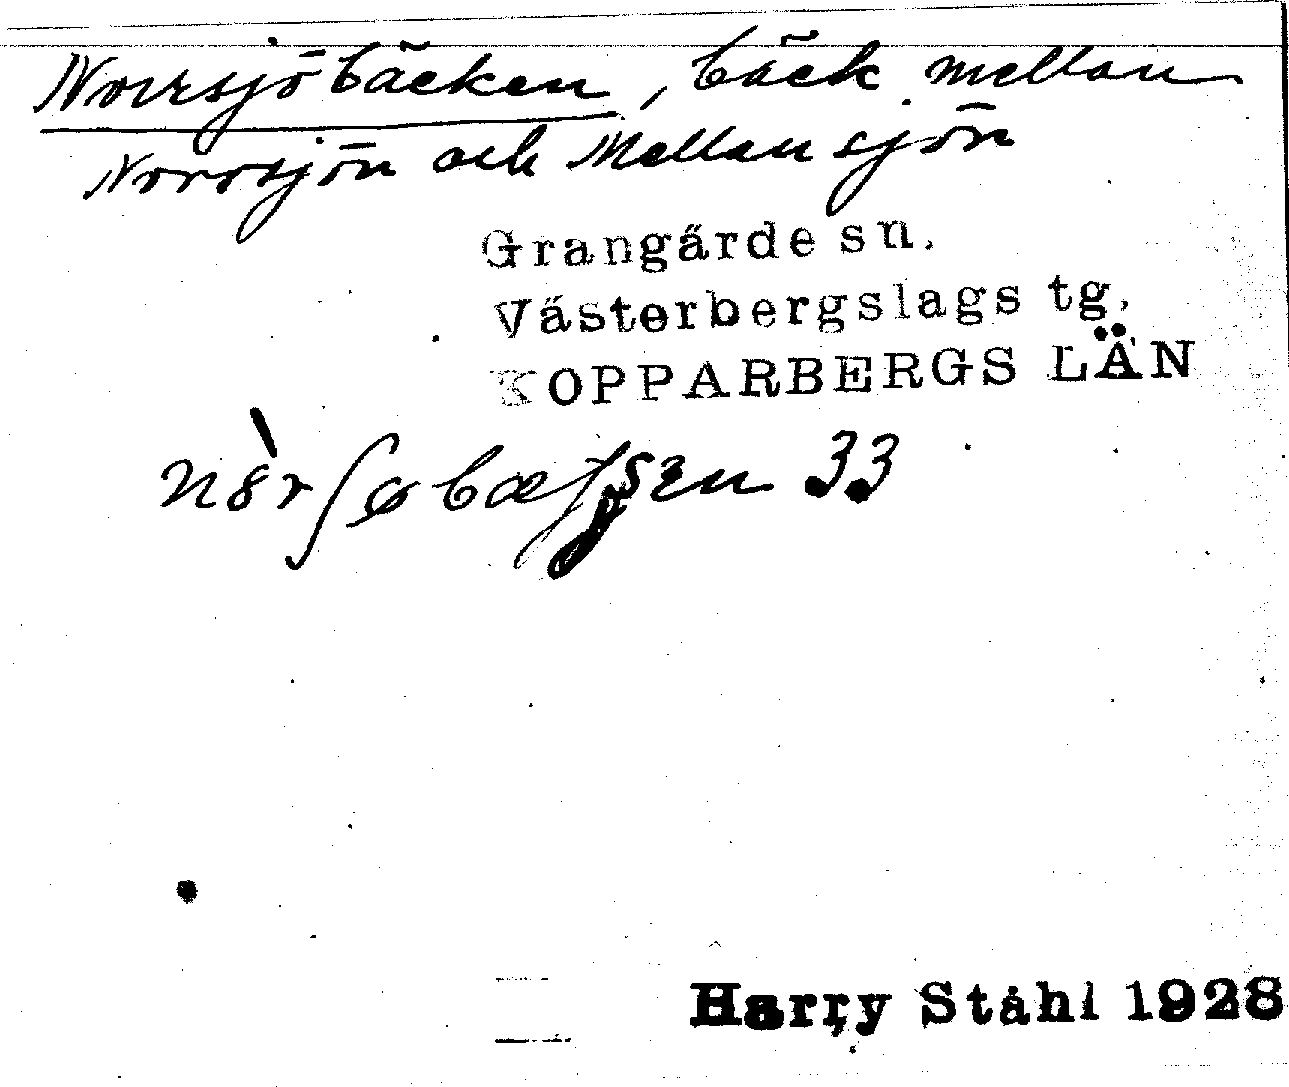 Norrsjöbäcken, bäck mellan
Norrsjön och Mellansjön
Grangärde sn.
Västerbergslags tg.
KOPPARBERGS LÄN
33
Harry Ståhl 1928